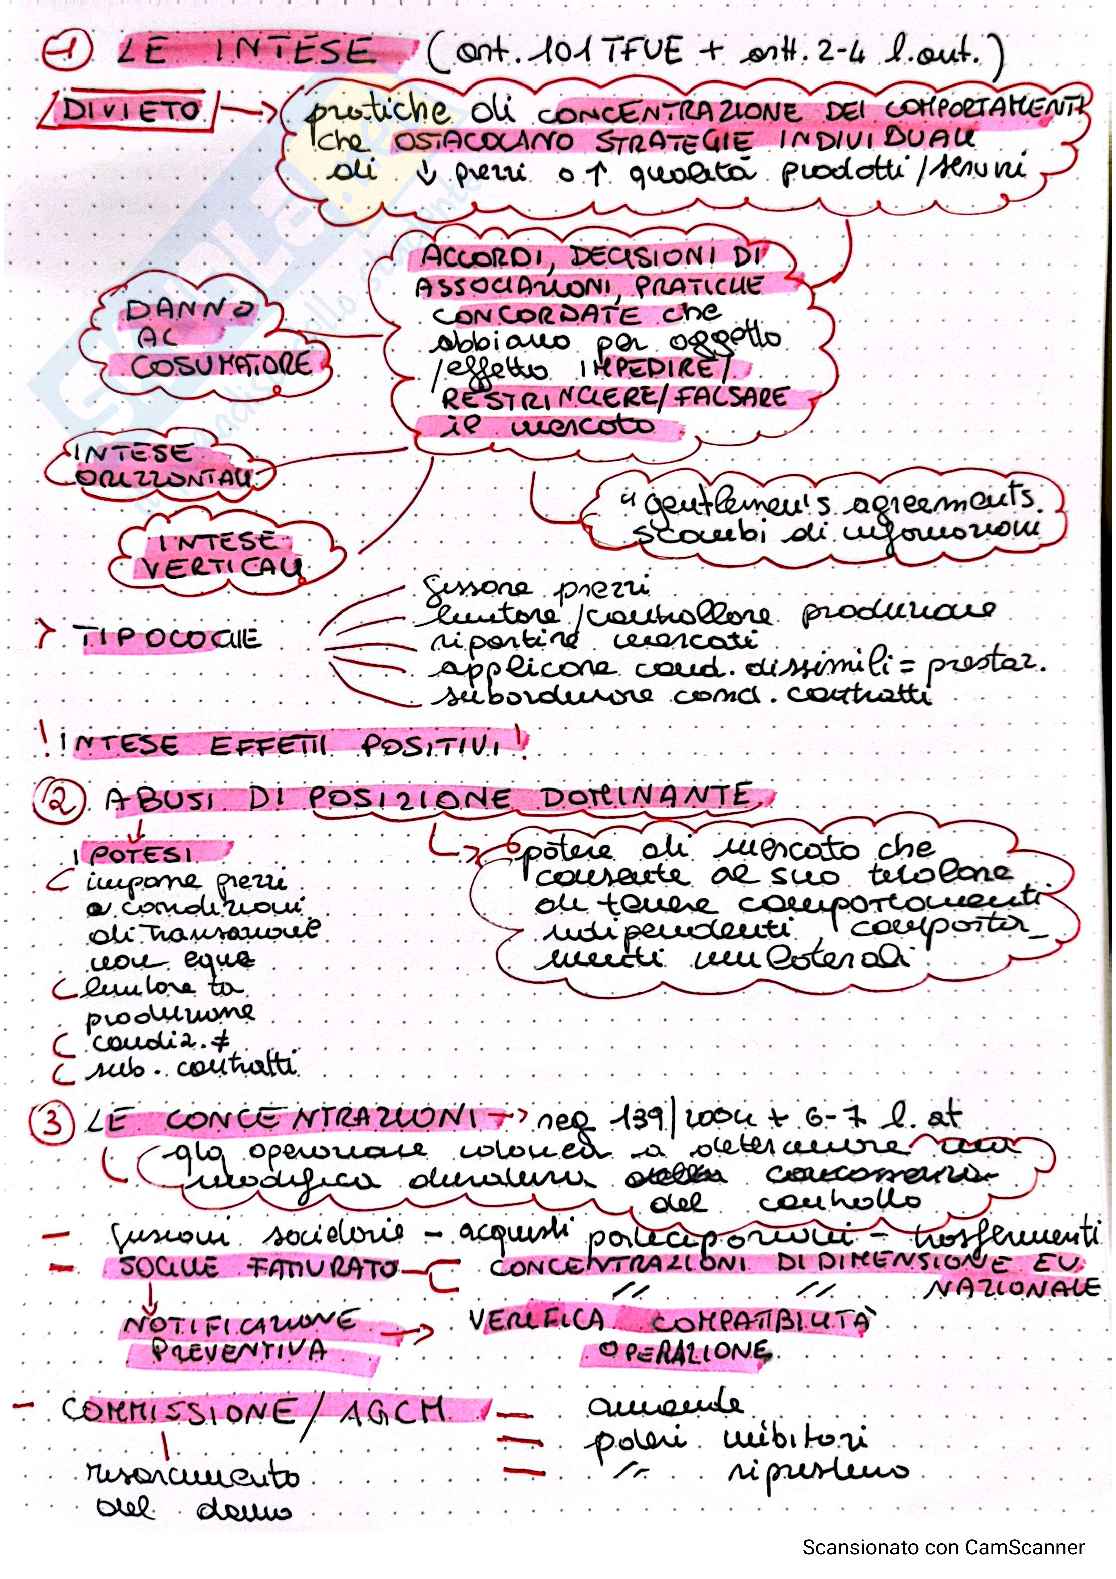 1 LE INTESE (art. 101 TFUE + artt. 2-4 l. ant.)
DIVIETO → pratiche di CONCENTRAZIONE DEI COMPORTAMENTI
che OSTACOLANO STRATEGIE INDIVIDUALI
di ↓ prezzi o ↑ qualità prodotti/servizi
ACCORDI, DECISIONI DI
ASSOCIAZIONI, PRATICHE
CONCORDATE che
abbiano per oggetto
/effetto IMPEDIRE/
RESTRINGERE/FALSARE
il mercato
DANNO
AL
COSUMATORE
INTESE
ORIZZONTALI
INTESE
VERTICALI
"gentlemen's agreements
scambi di informazioni
> TIPOLOGIE
fissare prezzi
limitare/controllare produzione
ripartire mercati
applicare cond. dissimili = prestaz.
subordinare concl. contratti
! INTESE EFFETTI POSITIVI !
2 ABUSI DI POSIZIONE DOMINANTE
IPOTESI
imporre prezzi
o condizioni
di transazione
non eque
limitare la
produzione
condiz. ≠
sub. contratti
potere di mercato che
consente al suo titolare
di tenere comportamenti
indipendenti, comporta-
menti unilaterali
3 LE CONCENTRAZIONI → reg 139/2004 + 6-7 l. at
operazione idonea a determinare una
modifica duratura
del controllo
- fusioni societarie - acquisti partecipazioni - trasferimenti
- SOGLIE FATTURATO
CONCENTRAZIONI DI DIMENSIONE EU
" " NAZIONALE
NOTIFICAZIONE
PREVENTIVA
→ VERIFICA COMPATIBILITÀ
OPERAZIONE
- COMMISSIONE/AGCM
- ammende
- poteri inibitori
- " ripristino
risarcimento
del danno
Scansionato con CamScanner